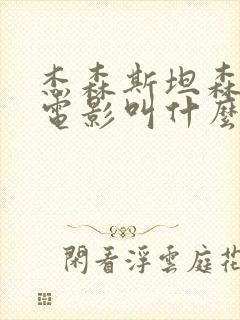 杰森斯坦森
電影叫什麼
閑看浮雲庭花